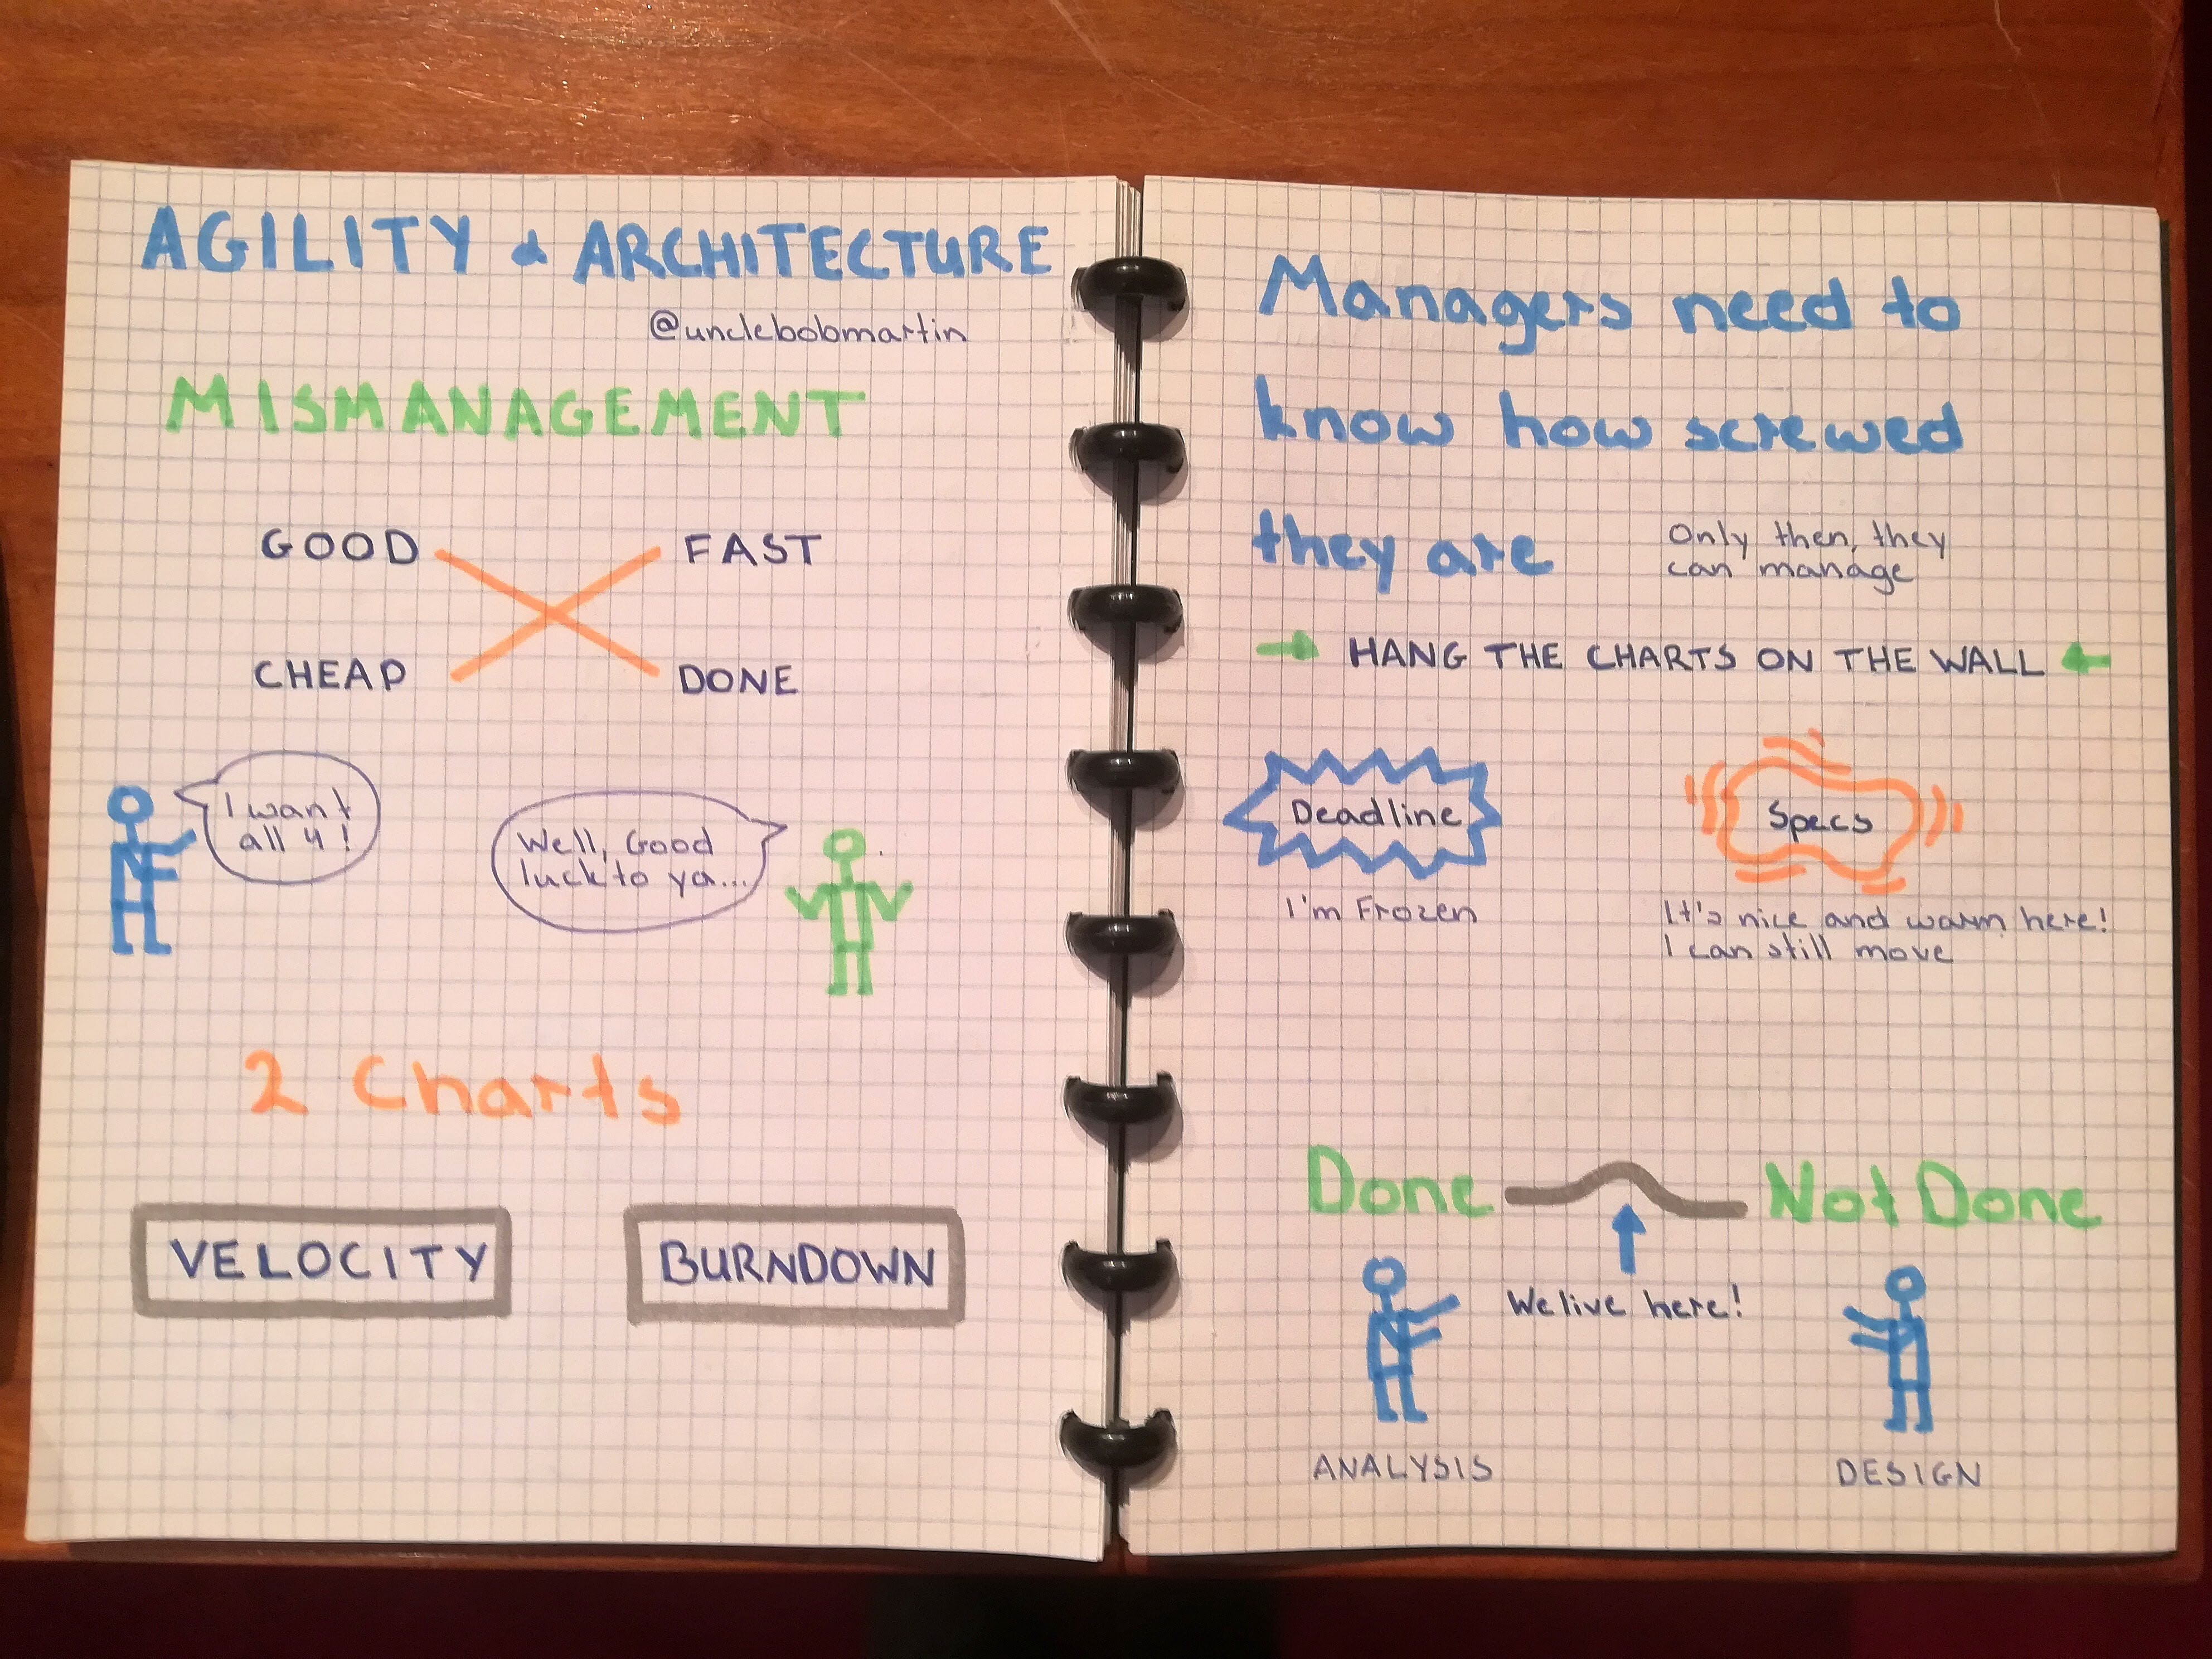 AGILITY & ARCHITECTURE
@unclebobmartin
MISMANAGEMENT
GOOD FAST
CHEAP DONE
I want
all 4!
Well, Good
luck to ya...
2 Charts
VELOCITY BURNDOWN
Managers need to
know how screwed
they are
Only then, they
can manage
HANG THE CHARTS ON THE WALL
Deadline
I'm Frozen
Specs
It's nice and warm here!
I can still move
Done Not Done
We live here!
ANALYSIS DESIGN